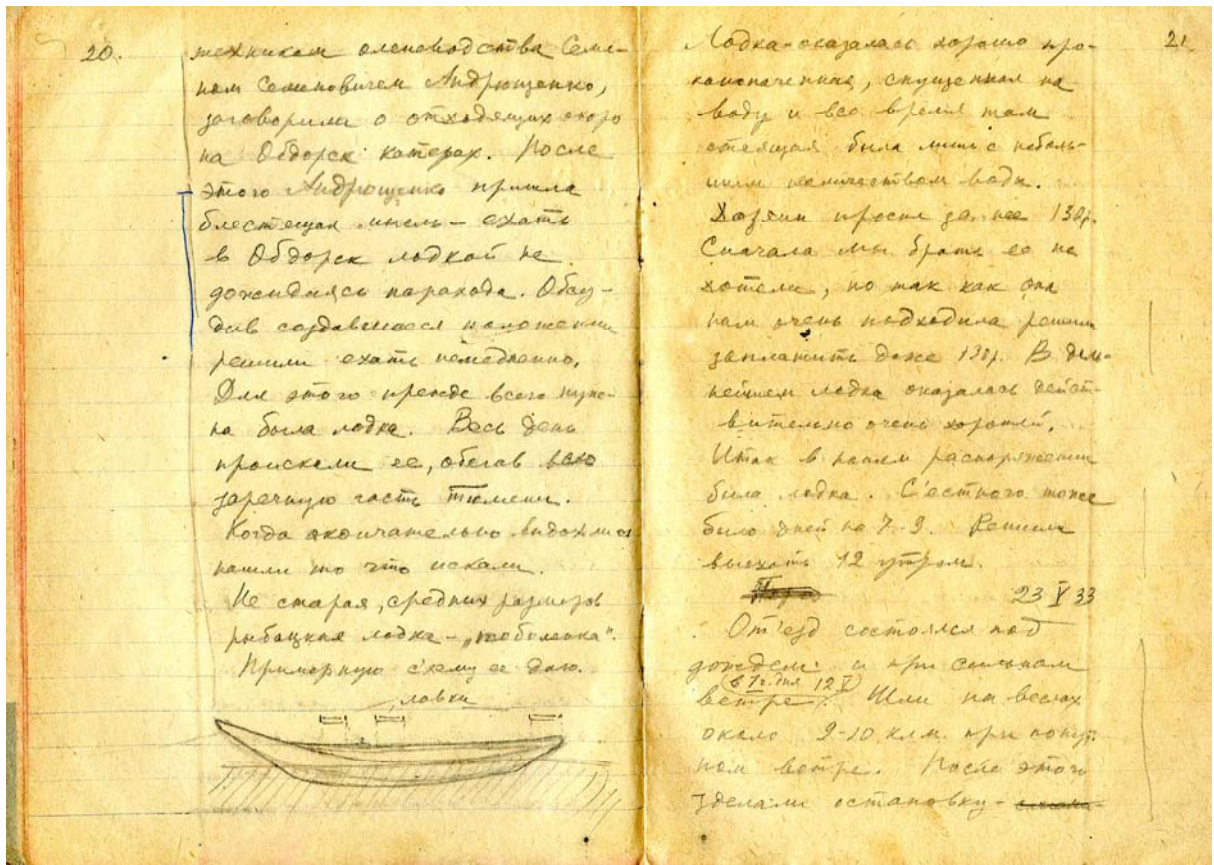 20.
техником оленеводства Семе-
ном Семеновичем Андрющенко,
заговорили о отходящих скоро
на Обдорск катерах. После
этого Андрющенко пришла
блестящая мысль - ехать
в Обдорск лодкой не
дожидаясь парахода. Обсу-
див создавшееся положение
решили ехать немедленно.
Для этого прежде всего нуж-
на была лодка. Весь день
проискали ее, обегав всю
заречную часть Тюмени.
Когда окончательно выдохлись
нашли то что искали.
Не старая, средних размеров
рыбацкая лодка - „тоболенка".
Примерную с'хему ее даю.
лавки
21
Лодка - оказалась хорошо про-
канопаченная, спущенная на
воду и все время там
стоящая была лишь с неболь-
шим количеством воды.
Хозяин просил за нее 130р.
Сначала мы брать ее не
хотели, но так как она
нам очень подходила решили
заплатить даже 130р. В даль-
нейшем лодка оказалась дейст-
вительно очень хорошей.
Итак в нашем распоряжении
была лодка. С'естного тоже
было дней на 7-9. Решили
выехать 12 утром.
23 V 33
От'езд состоялся под
дождем и при сильном
(в 1 г. дня 12 V)
ветре. Шли на веслах
около 9-10 клм. при попут-
ном ветре. После этого
зделали остановку -